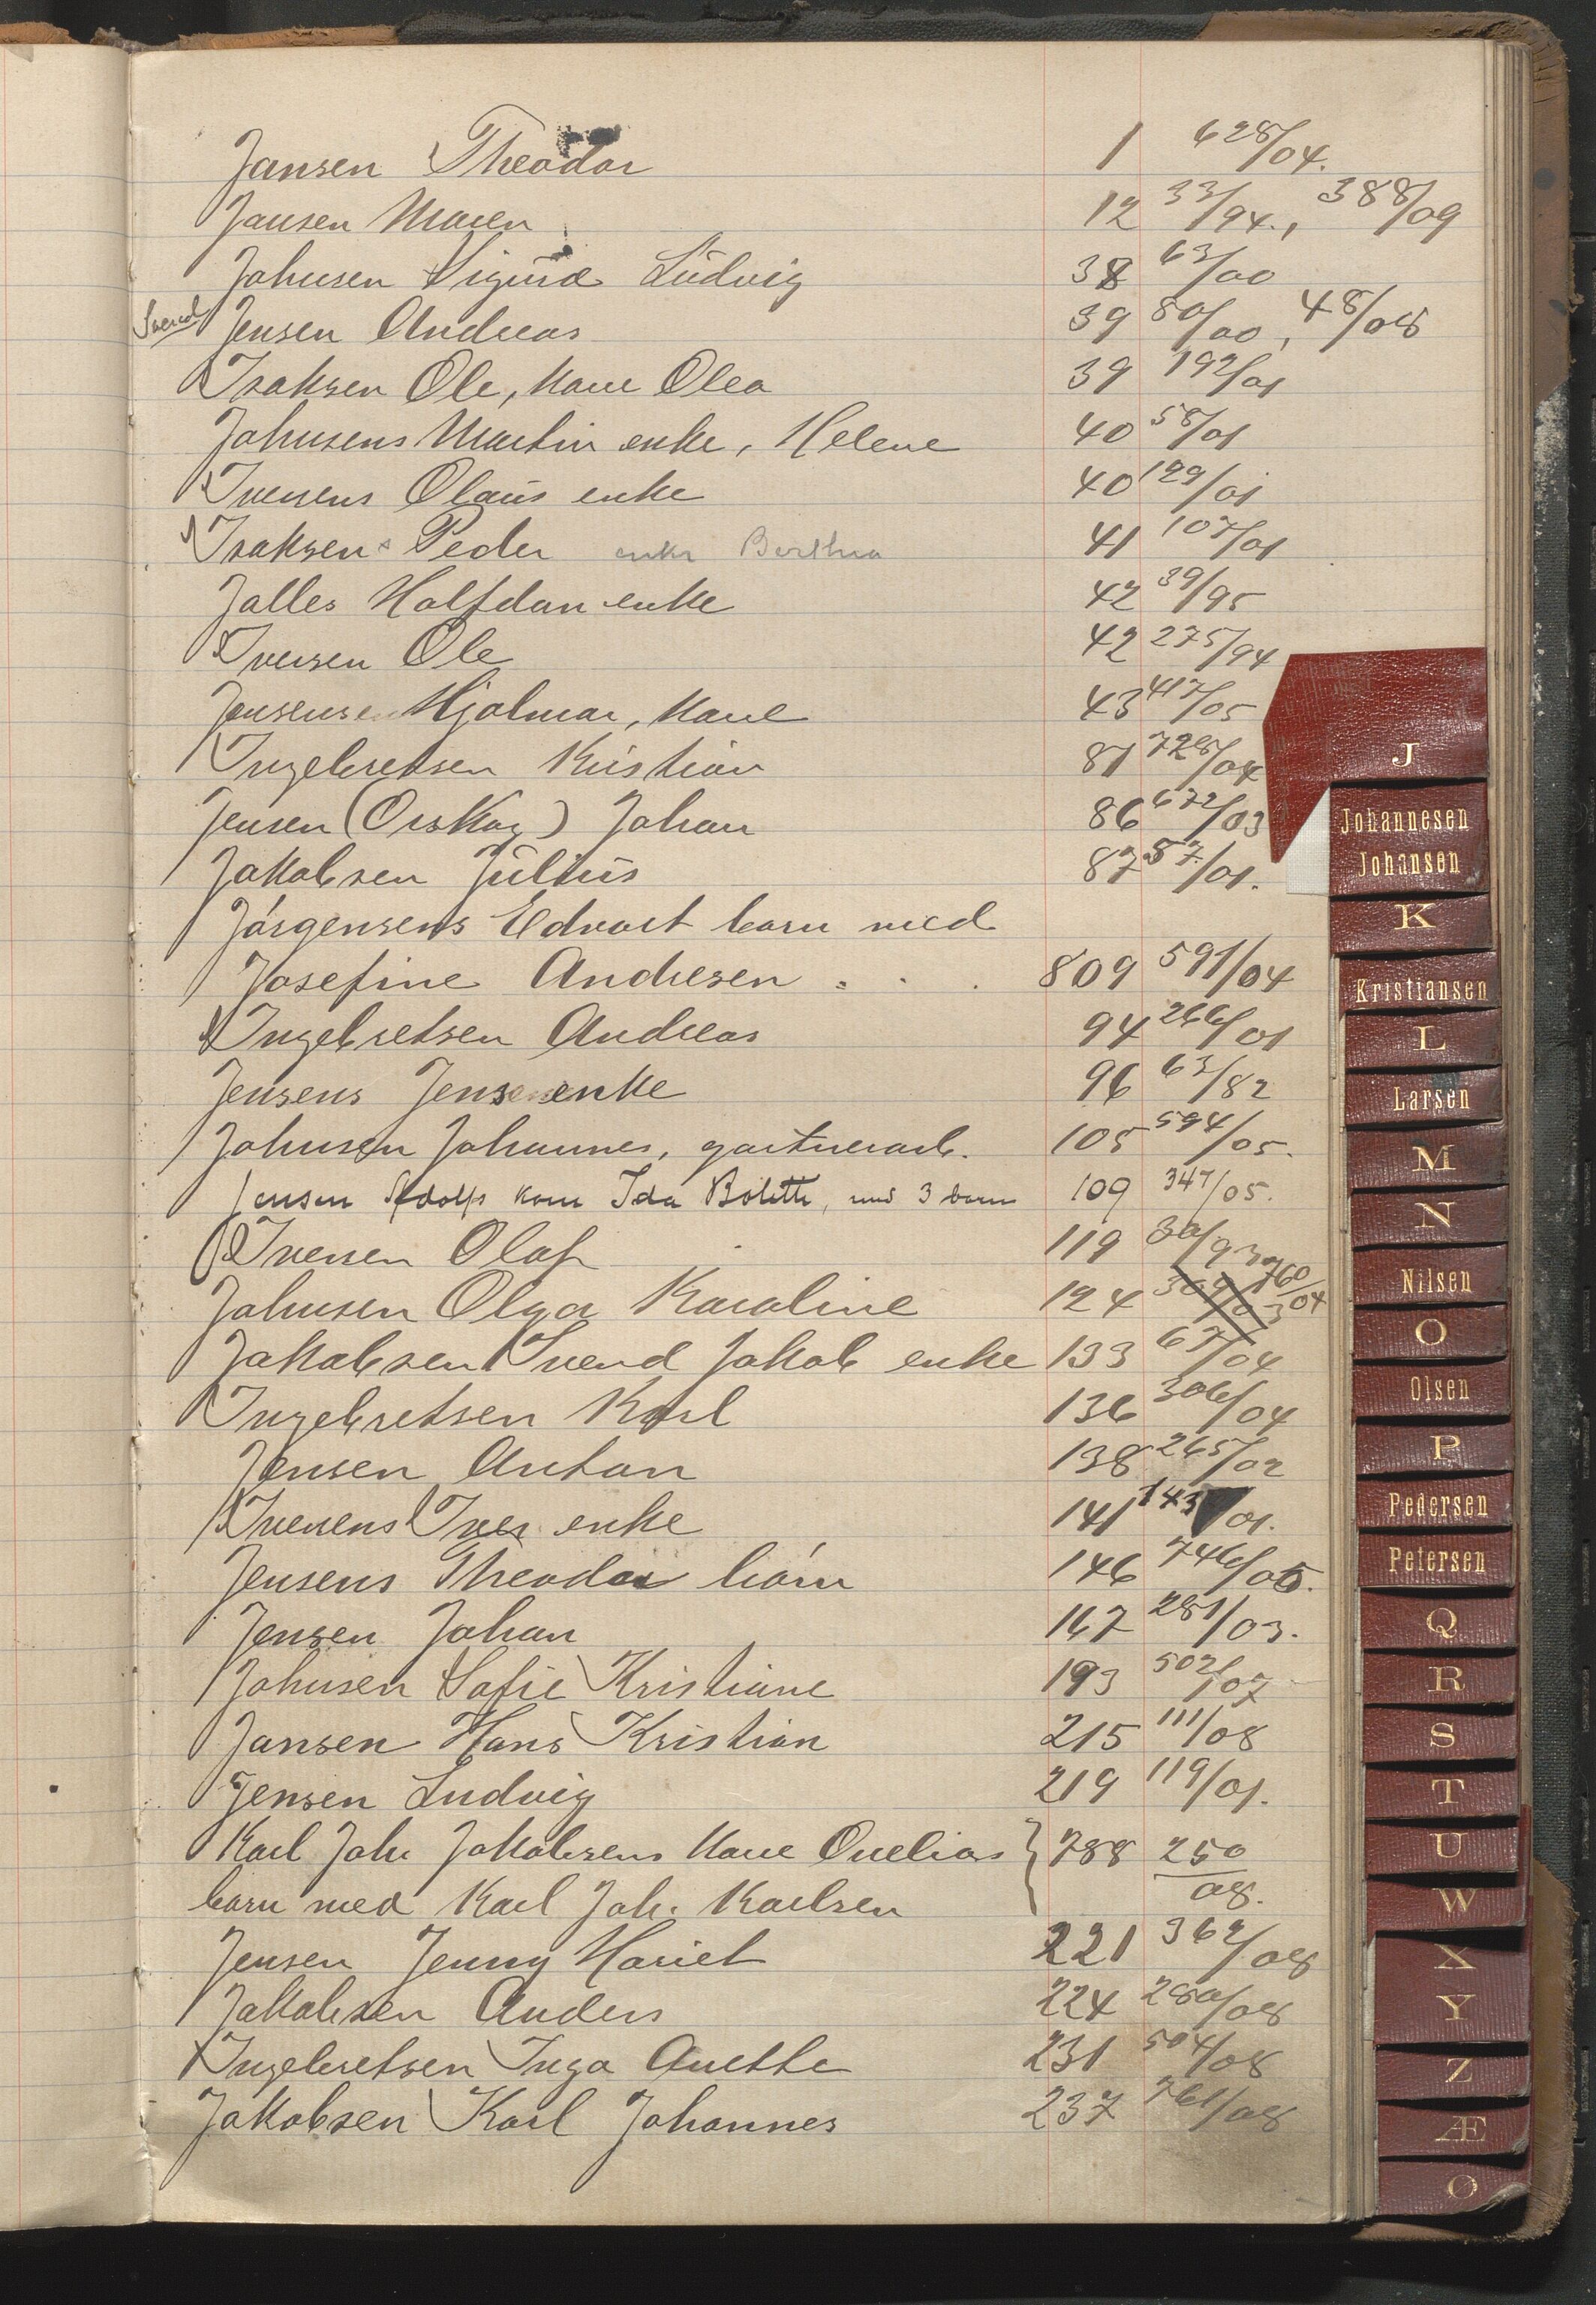 Jansen Theodor 1 628/04.
Jansen Maren 12 33/94., 388/09
Johnsen Sigurd Ludvig 38 63/00
Svend Jensen Andreas 39 80/00, 48/08
Isaksen Ole, Kone Olea 39 192/01
Johnsens Martin enke, Helene 40 58/01
Iversens Olaus enke 40 129/01
Isaksen Peder enke Berthea 41 107/01
Jalles Halfdan enke 42 39/95
Iversen Ole 42 275/94
Jensens Hjalmar, Kone 43 417/05
Ingebretsen Kristian 81 728/04
Jensen (Orskog) Johan 86 672/03
Jakobsen Julius 87 57/01.
Jørgensens Edvart barn med
Josefine Andresen . . 809 591/04
Ingebretsen Andreas 94 266/01
Jensens Jens enke 96 63/82
Johnsen Johannes, gartnerarb. 105 594/05.
Jensen Adolfs kone Ida Bolette, med 3 barn 109 347/05.
Iversen Olaf 119 30/93
Johnsen Olga Karoline 124 309/03 760/04
Jakobsen Svend Jakob enke 133 67/04
Ingebretsen Karl 136 306/04
Jensen Anton 138 265/02
Iversens Iver enke 141 143/01.
Jensens Theodor børn 146 746/05.
Jensen Johan 167 281/03.
Johnsen Sofie Kristiane 193 502/07
Jansen Hans Kristian 215 111/08
Jensen Ludvig 219 119/01.
Karl Joh. Jakobsens Kone Ovelias } 788 250/08.
barn med Karl Joh. Karlsen
Jensen Jenny Hariet 221 362/08
Jakobsen Anders 224 280/08
Ingebretsen Inga Anette 231 504/08
Jakobsen Karl Johannes 237 761/08
J
Johannesen
Johansen
K
Kristiansen
L
Larsen
M
N
Nilsen
O
Olsen
P
Pedersen
Petersen
Q
R
S
T
U
W
X
Y
Z
Æ
Ø